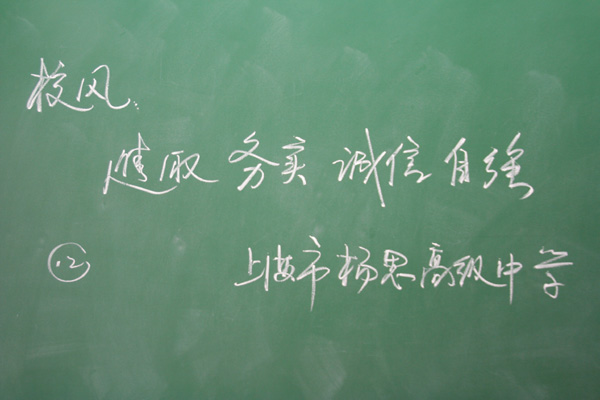 校风:
進取 务实 诚信 自强
上海市杨思高级中学